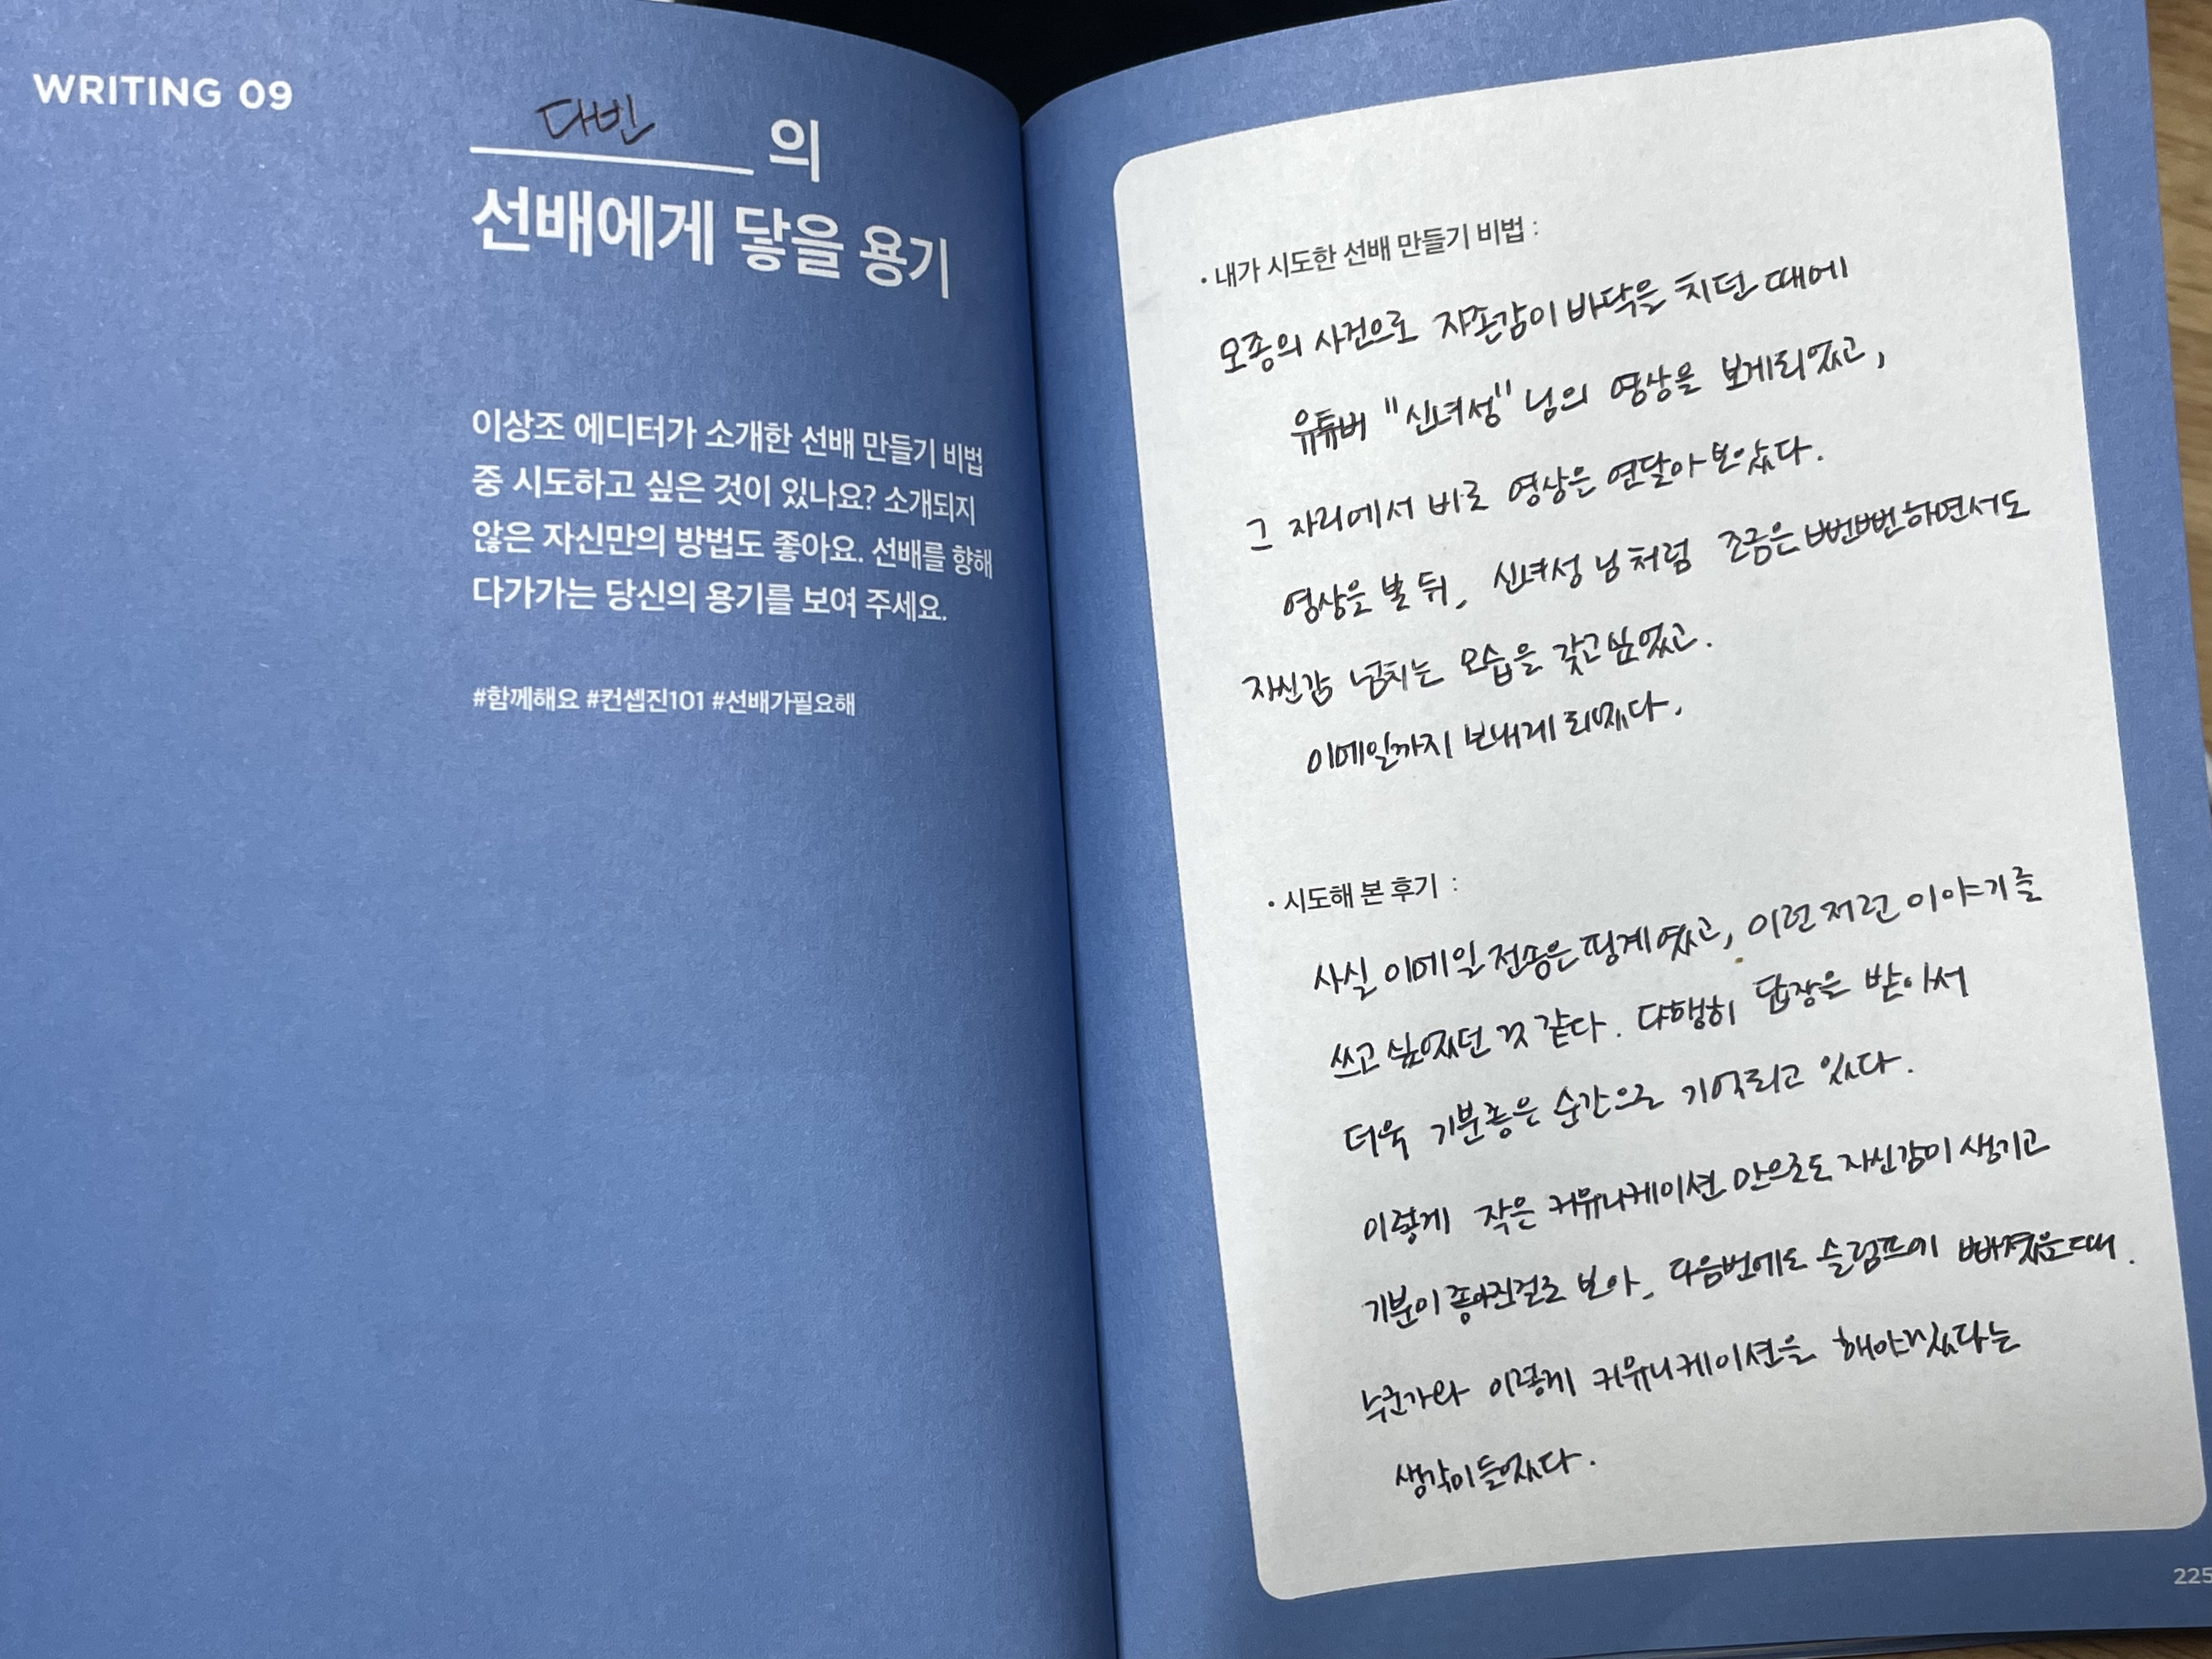 WRITING 09
다빈 의
선배에게 닿을 용기
이상조 에디터가 소개한 선배 만들기 비법
중 시도하고 싶은 것이 있나요? 소개되지
않은 자신만의 방법도 좋아요. 선배를 향해
다가가는 당신의 용기를 보여 주세요.
#함께해요 #컨셉진101 #선배가필요해
• 내가 시도한 선배 만들기 비법 :
모종의 사건으로 자존감이 바닥을 치던 때에
유튜버 "신녀성" 님의 영상을 보게되었고,
그 자리에서 바로 영상은 연달아 보았다.
영상을 본 뒤, 신녀성 님 처럼 조금은 뻔뻔하면서도
자신감 넘치는 모습을 갖고싶었고.
이메일까지 보내게 되었다.
• 시도해 본 후기 :
사실 이메일 전송은 핑계였고, 이런 저런 이야기를
쓰고 싶었던 것 같다. 다행히 답장을 받아서
더욱 기분좋은 순간으로 기억되고 있다.
이렇게 작은 커뮤니케이션 만으로도 자신감이 생기고
기분이 좋아진걸로 보아, 다음번에도 슬럼프에 빠졌을때.
누군가와 이렇게 커뮤니케이션을 해야겠다는
생각이들었다.
225